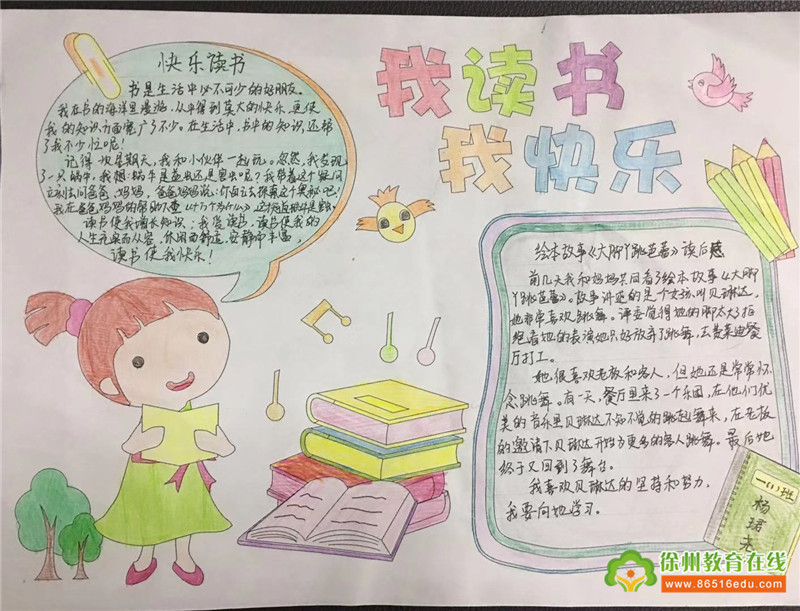 我读书
我快乐
快乐读书
书是生活中必不可少的好朋友。
我在书的海洋里漫游,从中得到莫大的快乐,更使
我的知识方面宽广了不少。在生活中,书中的知识还帮
了我不少忙呢!
记得一次星期天,我和小伙伴一起玩。忽然,我发现
了一只蜗牛,我想:蜗牛是益虫还是害虫呢?我带着这个疑问
立刻去问爸爸、妈妈,爸爸妈妈说:你自己去探索这个奥秘吧!
我在爸爸妈妈的帮助下,查《十万个为什么》这才知道蜗牛是害虫。
读书使我增长知识;我爱读书,读书使我的
人生充实而从容,休闲而舒适,安静而丰富,
读书使我快乐!
绘本故事《大脚丫跳芭蕾》读后感
前几天我和妈妈共同看了绘本故事《大脚
丫跳芭蕾》。故事讲述的是个女孩叫贝琳达,
她非常喜欢跳舞。评委觉得她的脚太大了拒
绝看她的表演她只好放弃了跳舞,去费莱迪餐
厅打工。
她很喜欢老板和客人,但她还是常常怀
念跳舞。有一天,餐厅里来了一个乐团,在他们优
美的音乐里贝琳达不知不觉的跳起舞来,在老板
的邀请下贝琳达开始为更多的客人跳舞。最后她
终于又回到了舞台。
我喜欢贝琳达的坚持和努力,
我要向她学习。
一(1)班
杨
珺
徐州教育在线
www.86516edu.com